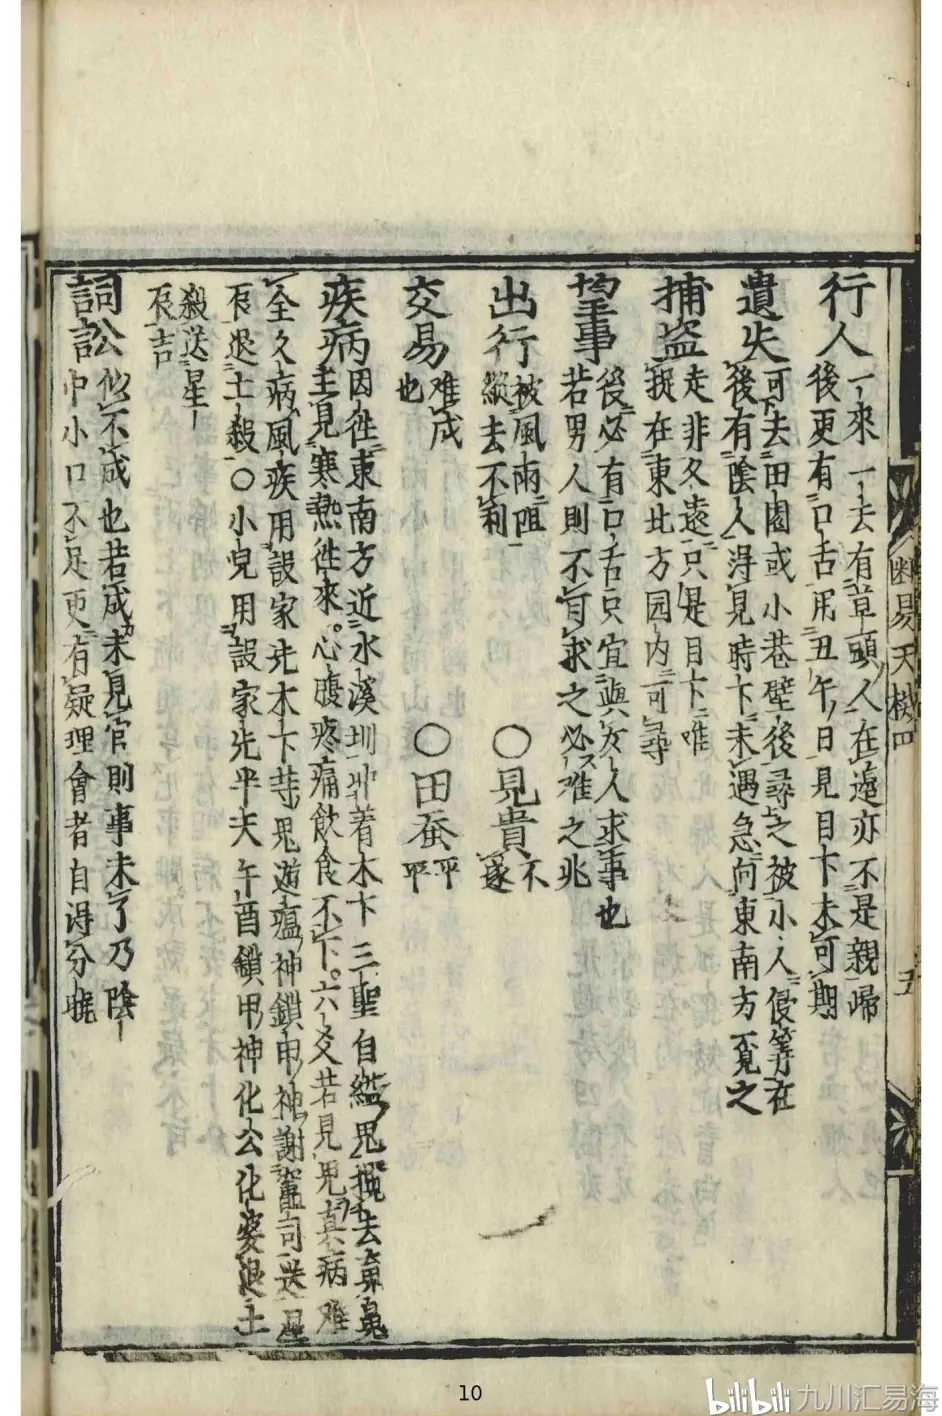 斷易天機四
五
行人
一來一去有草頭人在遠亦不是親歸
後更有口舌用丑午日見目下未可期
遺失
可去田園或小巷壁後尋之被小人侵筭在
後有陰人淂見時下未遇急向東南方覓之
捕盗
走非久遠只是目下唯
捉在東北方园内可尋
望事
後必有口舌只宜與女人求事也
若男人則不肯求之必难之兆
出行
被風雨阻
縱去不利
〇見貴
不
遂
交易
难成
也
〇田蚕
平
平
疾病
因徃東南方近水溪圳卅着木下三聖自縊鬼攪去
主見寒熱徃來心腹疼痛飲食不下六爻若見鬼真病难
全久病風疾用設家先木下寺鬼遊瘟神鎖甲神謝竈司送星
辰退土殺〇小兒用設家先平夫午酉鎖甲神化公化婆退土
殺送星
辰吉
詞訟
似不成也若成未見官則事未了乃陰
中小口不足更有疑理會者自淂分曉
10
bilibili 九川汇易海